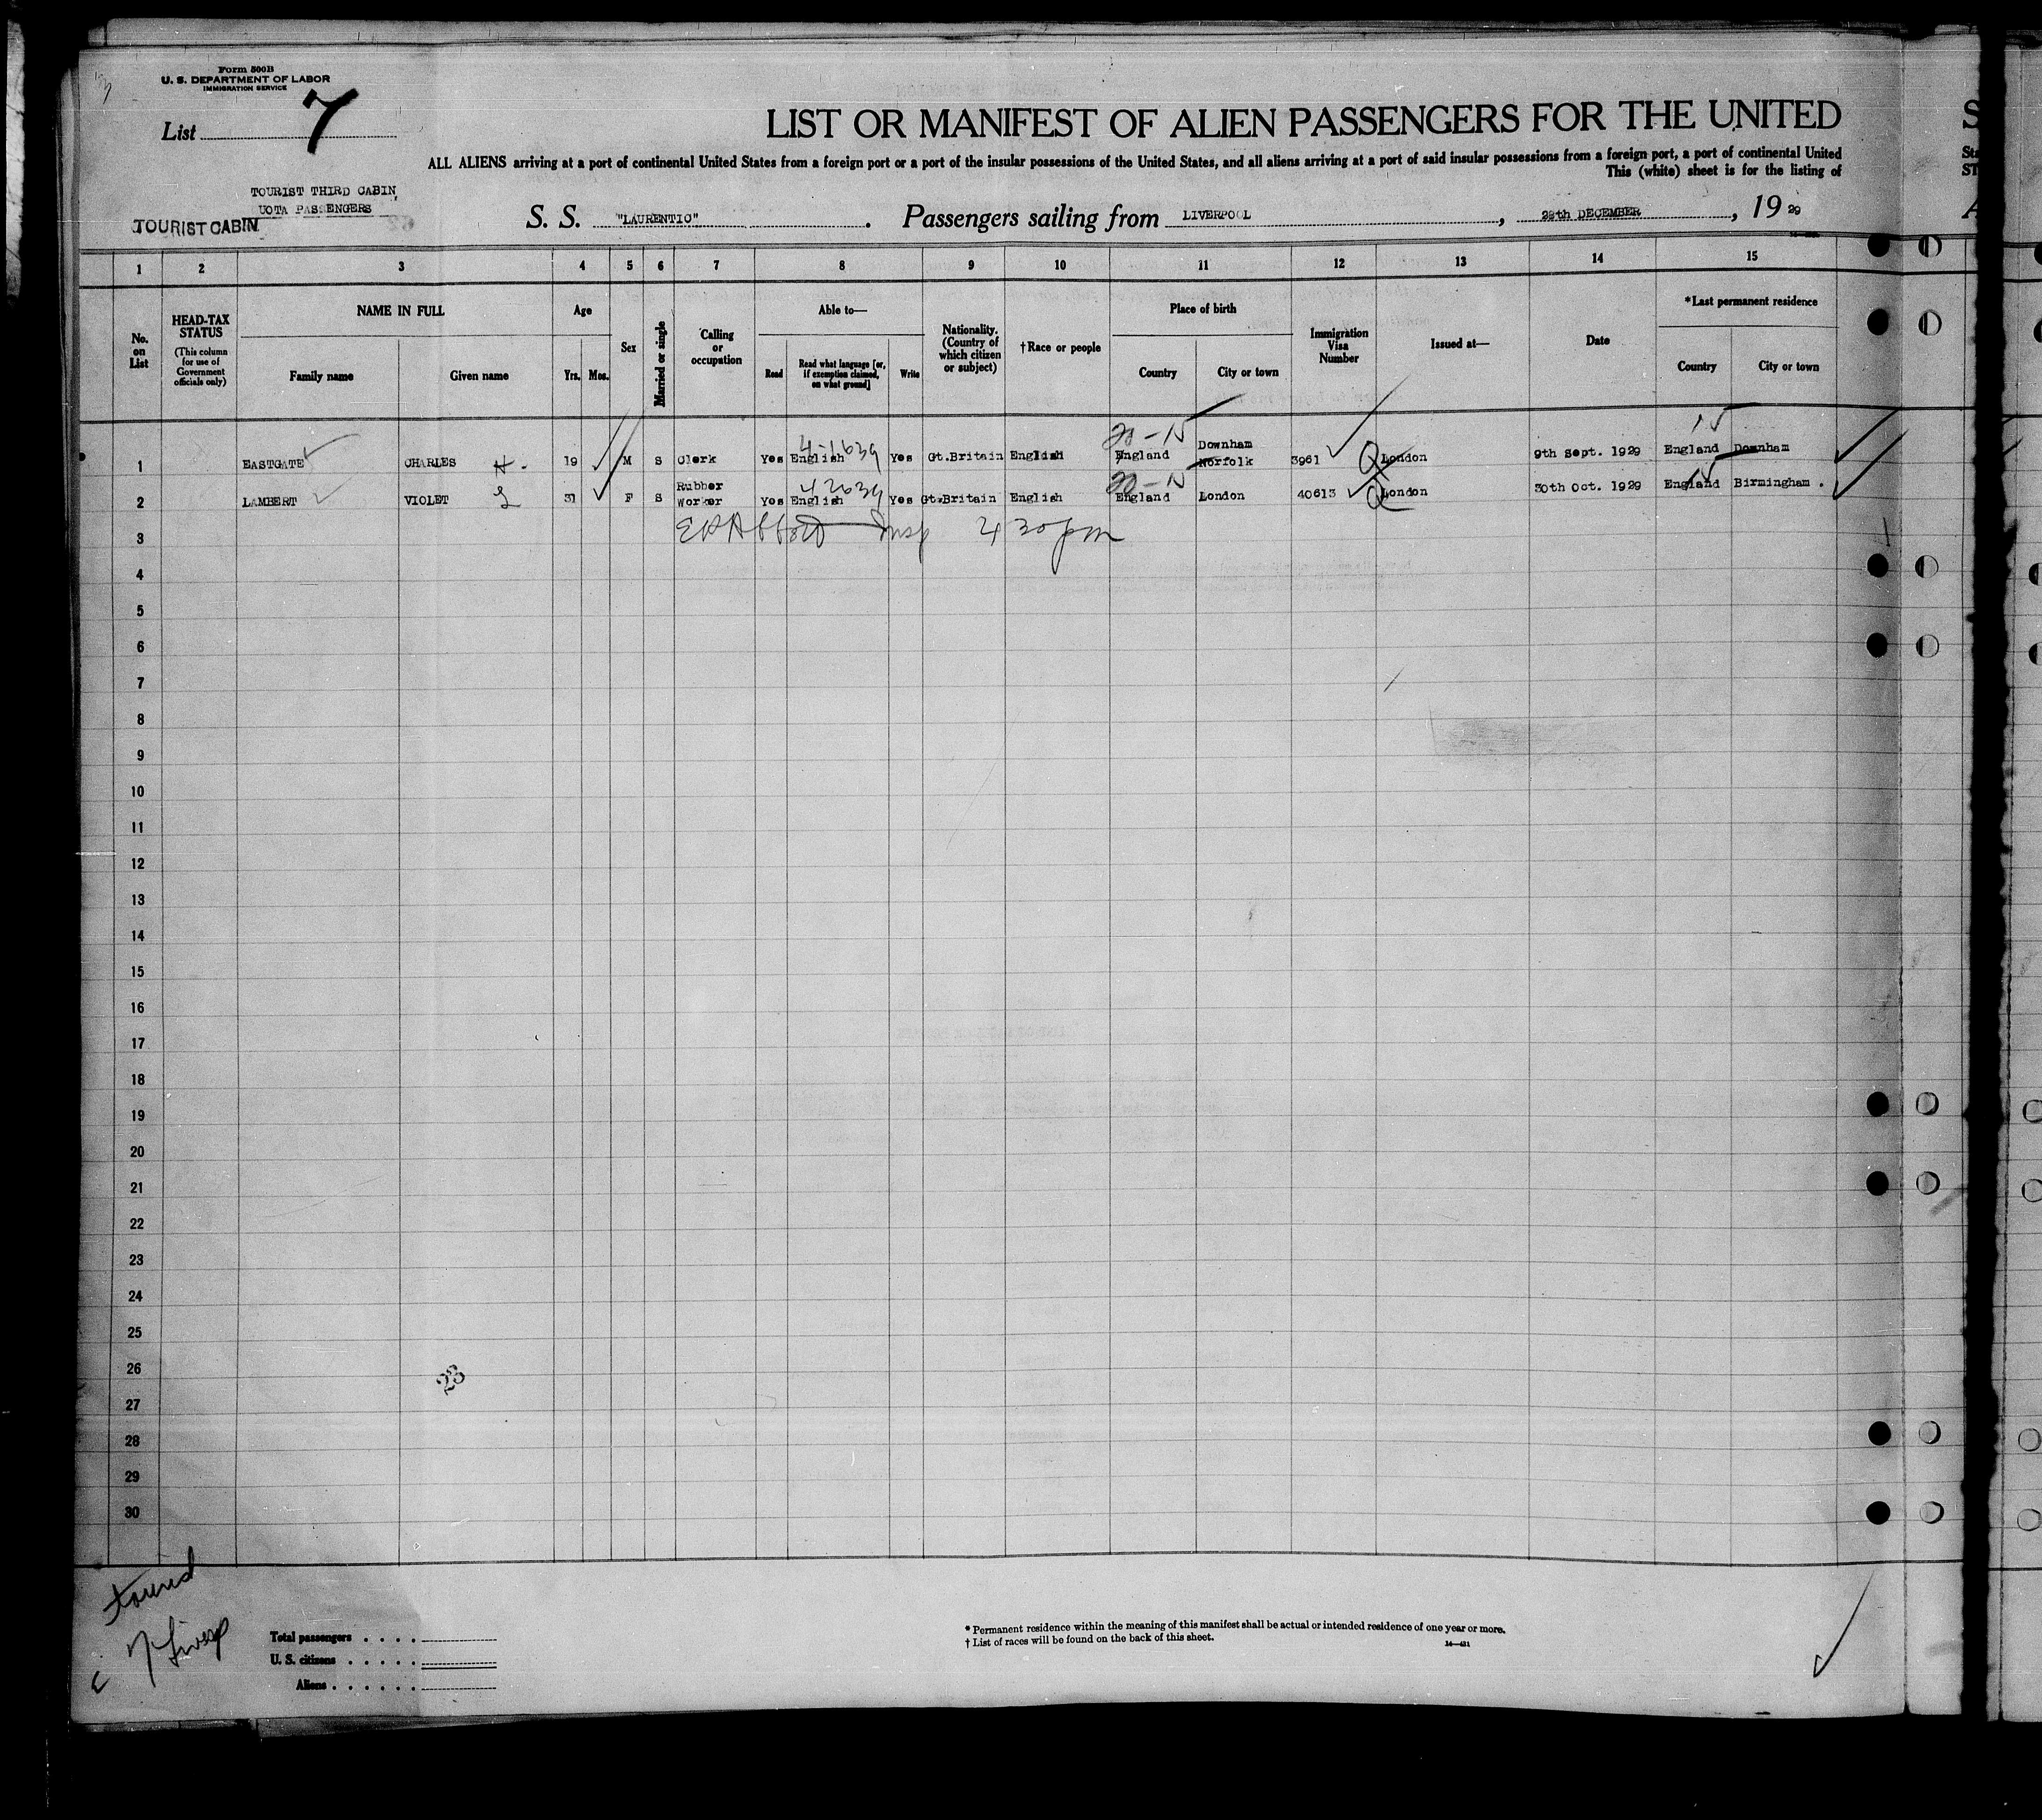 Form 500B
U. S. DEPARTMENT OF LABOR
IMMIGRATION SERVICE
List 7
LIST OR MANIFEST OF ALIEN PASSENGERS FOR THE UNITED
ALL ALIENS arriving at a port of continental United States from a foreign port or a port of the insular possessions of the United States, and all aliens arriving at a port of said insular possessions from a foreign port, a port of continental United
This (white) sheet is for the listing of
TOURIST THIRD CABIN,
UOTA PASSENGERS
TOURIST CABIN
S. S. "LAURENTIC". Passengers sailing from LIVERPOOL, 28th DECEMBER, 19 29
1 2 3 4 5 6 7 8 9 10 11 12 13 14 15
No. on List
HEAD-TAX STATUS (This column for use of Government officials only)
NAME IN FULL
Family name Given name
Age
Yrs. Mos.
Sex
Married or single
Calling or occupation
Able to—
Read Read what language [or, if exemption claimed, on what ground] Write
Nationality. (Country of which citizen or subject)
†Race or people
Place of birth
Country City or town
Immigration Visa Number
Issued at—
Date
*Last permanent residence
Country City or town
20-15 15
1 EASTGATE CHARLES H. 19 M S Clerk Yes English Yes Gt.Britain English England Downham Norfolk 3961 Q London 9th Sept. 1929 England Downham
20-15 15
2 LAMBERT VIOLET L 31 F S Rubber Worker Yes English Yes Gt.Britain English England London 40613 Q London 30th Oct. 1929 England Birmingham.
3 Insp 4 30 pm
4
5
6
7
8
9
10
11
12
13
14
15
16
17
18
19
20
21
22
23
24
25
26
23
27
28
29
30
Total passengers . . . .
U. S. citizens . . . . .
Aliens . . . . . .
* Permanent residence within the meaning of this manifest shall be actual or intended residence of one year or more.
† List of races will be found on the back of this sheet.
14—431